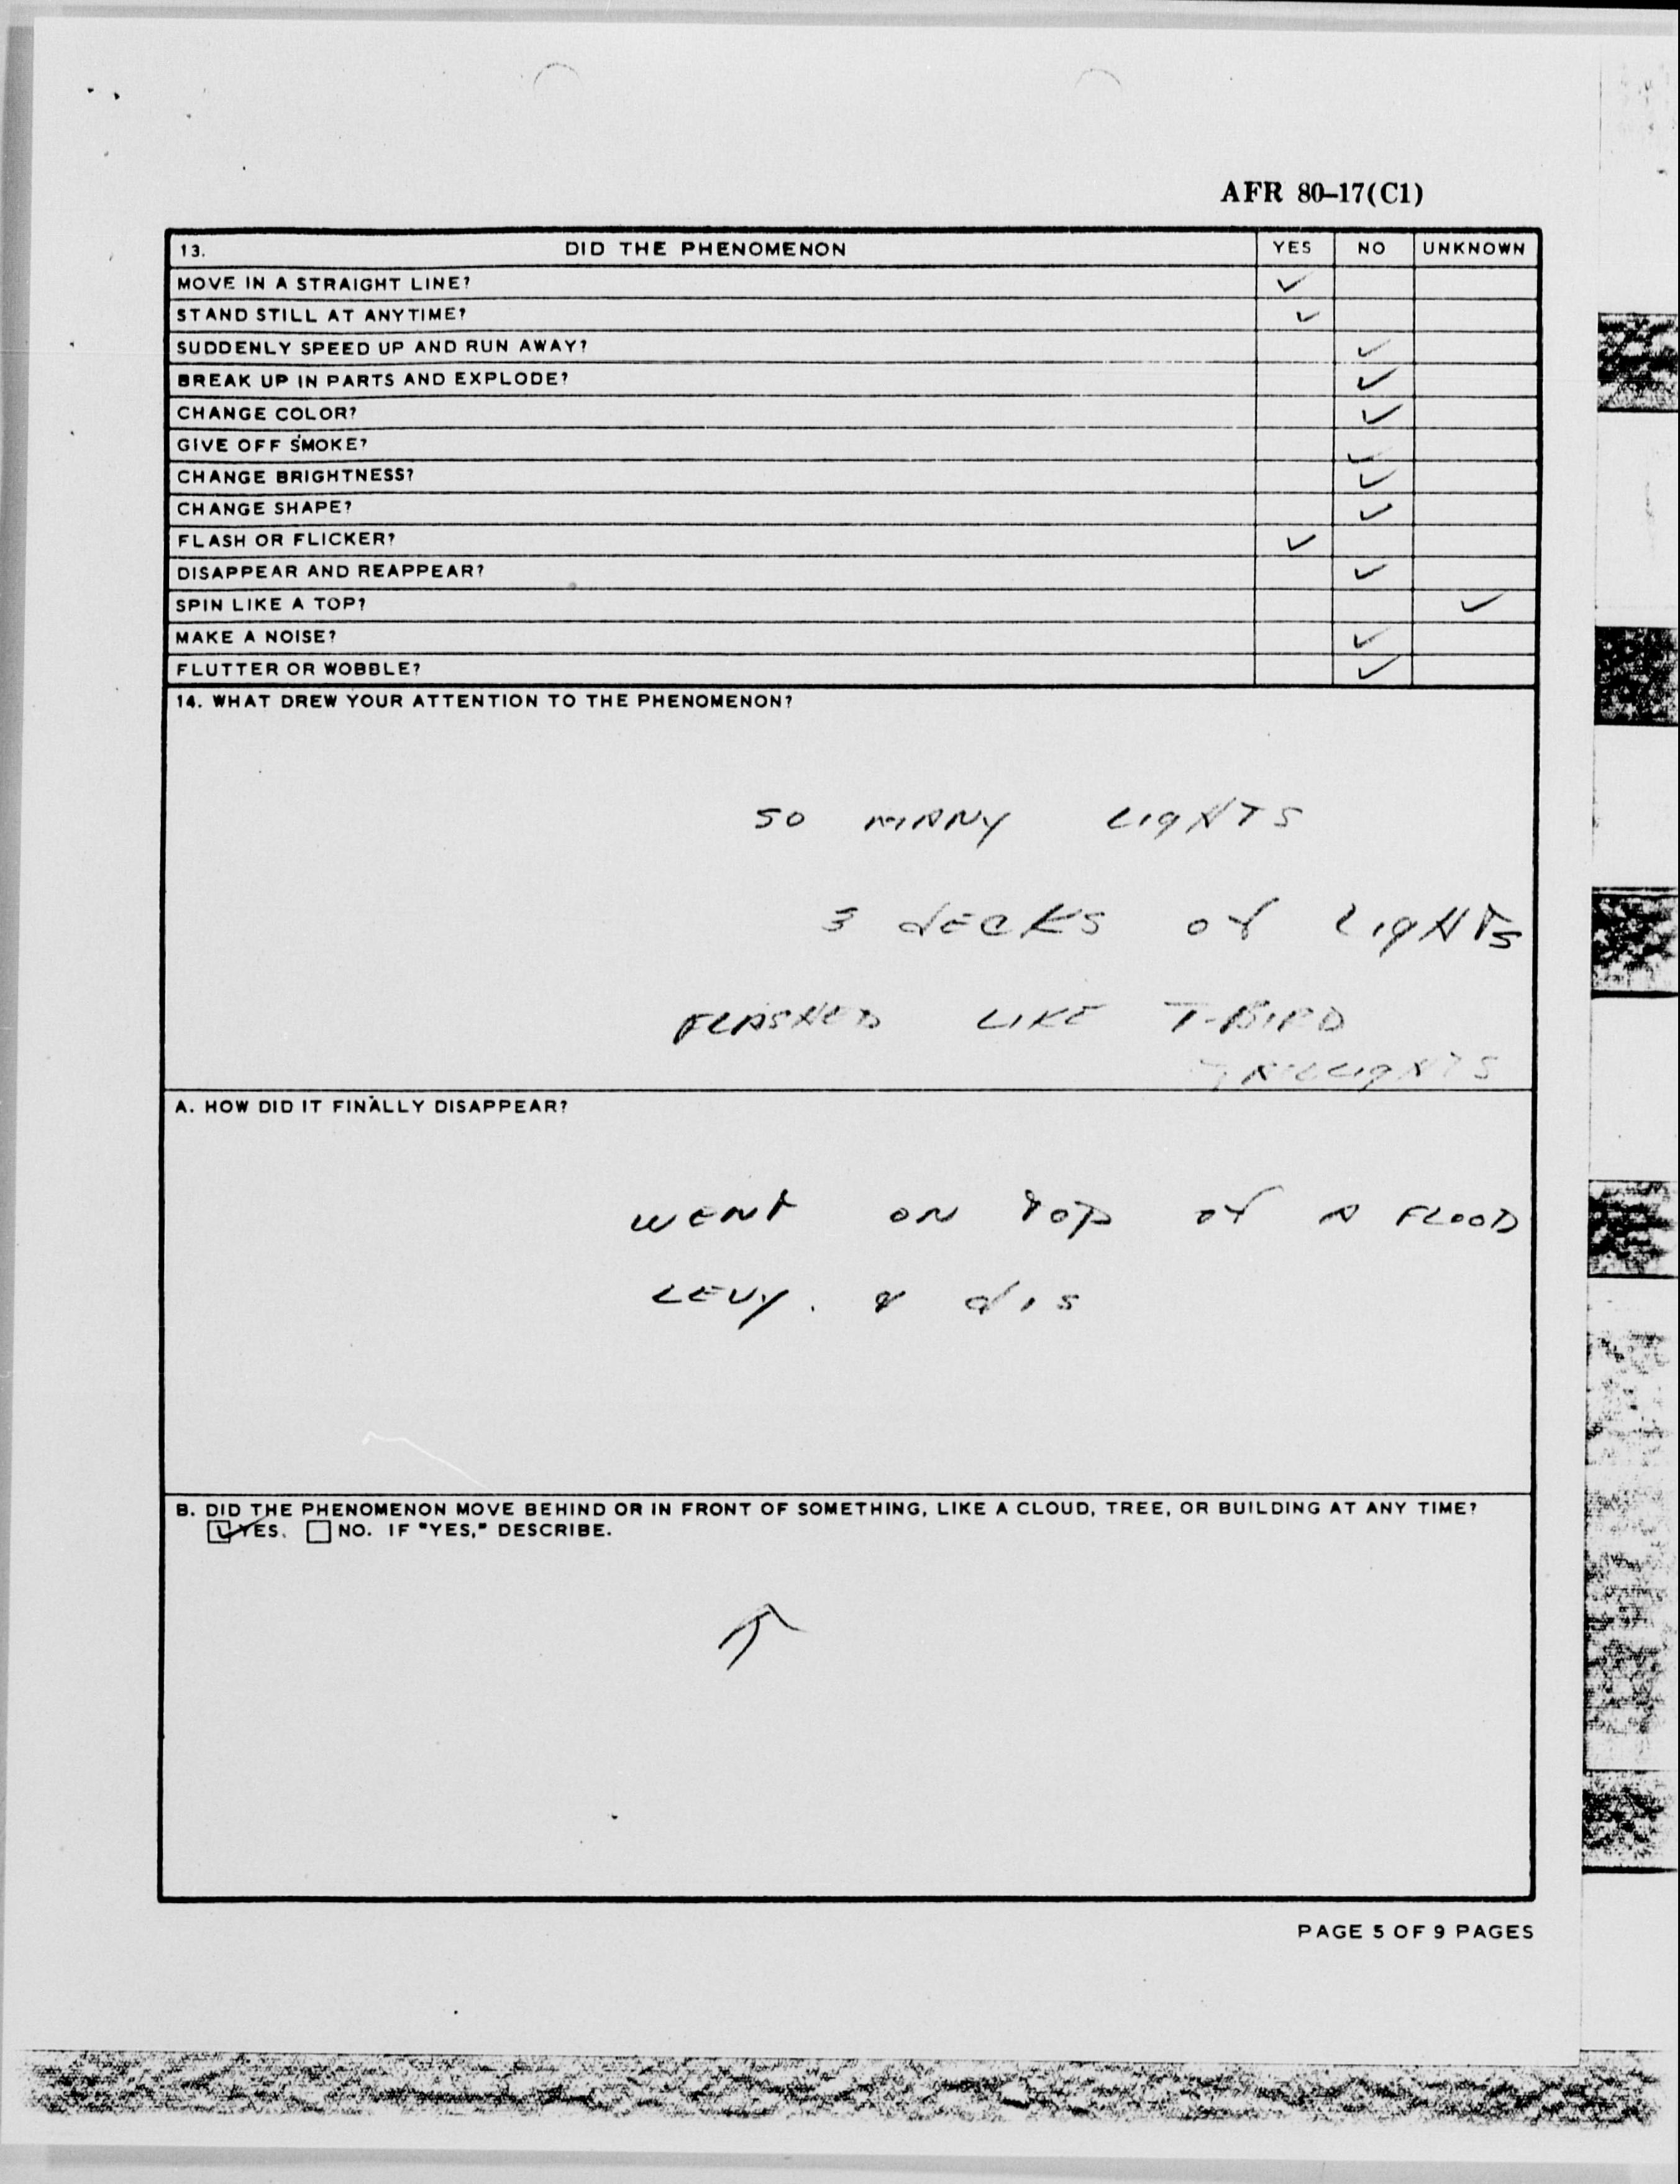 AFR 80-17(C1)
13. DID THE PHENOMENON YES NO UNKNOWN
MOVE IN A STRAIGHT LINE? ✓
STAND STILL AT ANYTIME? ✓
SUDDENLY SPEED UP AND RUN AWAY? ✓
BREAK UP IN PARTS AND EXPLODE? ✓
CHANGE COLOR? ✓
GIVE OFF SMOKE? ✓
CHANGE BRIGHTNESS? ✓
CHANGE SHAPE? ✓
FLASH OR FLICKER? ✓
DISAPPEAR AND REAPPEAR? ✓
SPIN LIKE A TOP? ✓
MAKE A NOISE? ✓
FLUTTER OR WOBBLE? ✓
14. WHAT DREW YOUR ATTENTION TO THE PHENOMENON?
SO MANY LIGHTS
3 decks of LigHTs
FLASHED LIKE T-BIRD
TAILLIGHTS
A. HOW DID IT FINALLY DISAPPEAR?
WENT ON TOP OF A FLOOD
LEVY. & dis
B. DID THE PHENOMENON MOVE BEHIND OR IN FRONT OF SOMETHING, LIKE A CLOUD, TREE, OR BUILDING AT ANY TIME?
☑ YES. ☐ NO. IF "YES," DESCRIBE.
↑
PAGE 5 OF 9 PAGES